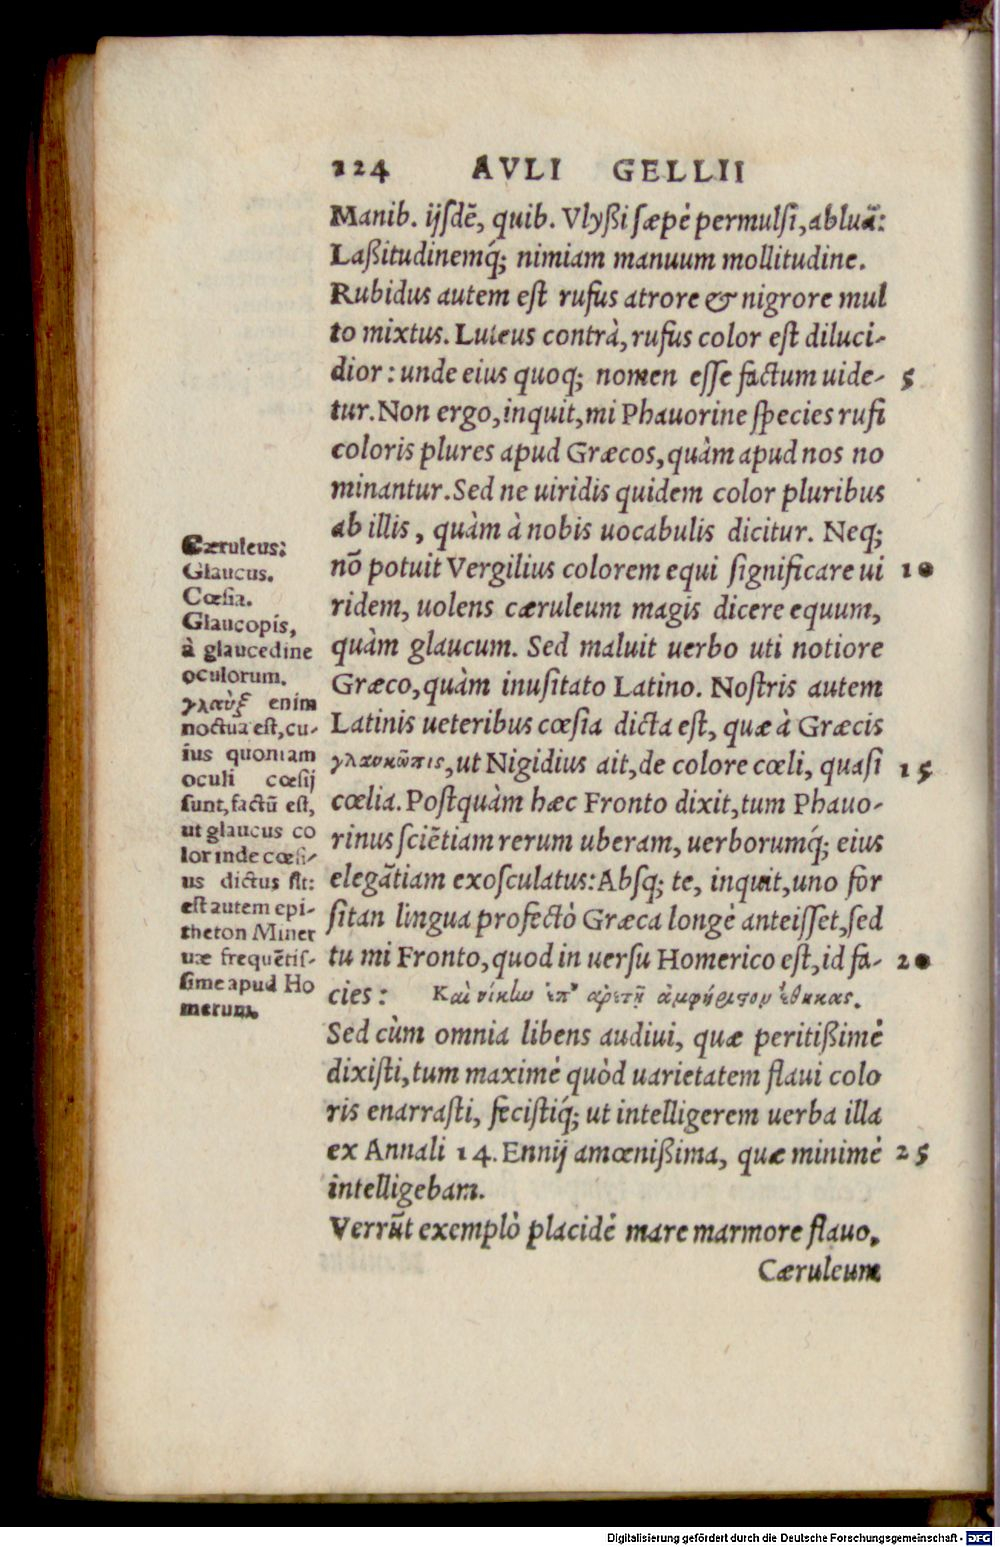 224 AVLI GELLII
Manib. ijſdē, quib. Vlyßi ſæpè permulſi, abluā:
Laßitudinemq́; nimiam manuum mollitudine.
Rubidus autem eſt rufus atrore & nigrore mul
to mixtus. Luteus contrà, rufus color eſt diluci-
dior: unde eius quoq; nomen eſſe factum uide- 5
tur. Non ergo, inquit, mi Phauorine ſpecies rufi
coloris plures apud Græcos, quàm apud nos no
minantur. Sed ne uiridis quidem color pluribus
ab illis, quàm à nobis uocabulis dicitur. Neq;
nō potuit Vergilius colorem equi ſignificare ui 10
ridem, uolens cæruleum magis dicere equum,
quàm glaucum. Sed maluit uerbo uti notiore
Græco, quàm inuſitato Latino. Noſtris autem
Latinis ueteribus cœſia dicta eſt, quæ à Græcis
γλαυκῶπις, ut Nigidius ait, de colore cœli, quaſi 15
cœlia. Poſtquàm hæc Fronto dixit, tum Phauo-
rinus ſciētiam rerum uberam, uerborumq́; eius
elegātiam exoſculatus: Abſq; te, inquit, uno for
ſitan lingua profectò Græca longè anteiſſet, ſed
tu mi Fronto, quod in uerſu Homerico eſt, id fa- 20
cies: Καὶ νίκω ἐπ' ἀρετῇ ἀμφήριστον ἔθηκας.
Sed cùm omnia libens audiui, quæ peritißimè
dixiſti, tum maximè quòd uarietatem flaui colo
ris enarraſti, feciſtiq́; ut intelligerem uerba illa
ex Annali 14. Ennij amœnißima, quæ minimè 25
intelligebam.
Verrūt exemplò placidè mare marmore flauo.
Cæruleum
Cæruleus:
Glaucus.
Cœſia.
Glaucopis,
à glaucedine
oculorum.
γλαὺξ enim
noctua eſt, cu-
ius quoniam
oculi cœſij
ſunt, factū eſt,
ut glaucus co
lor inde cœſi-
us dictus ſit:
eſt autem epi-
theton Miner
uæ frequētiſ-
ſime apud Ho
merum.
Digitalisierung gefördert durch die Deutsche Forschungsgemeinschaft - DFG